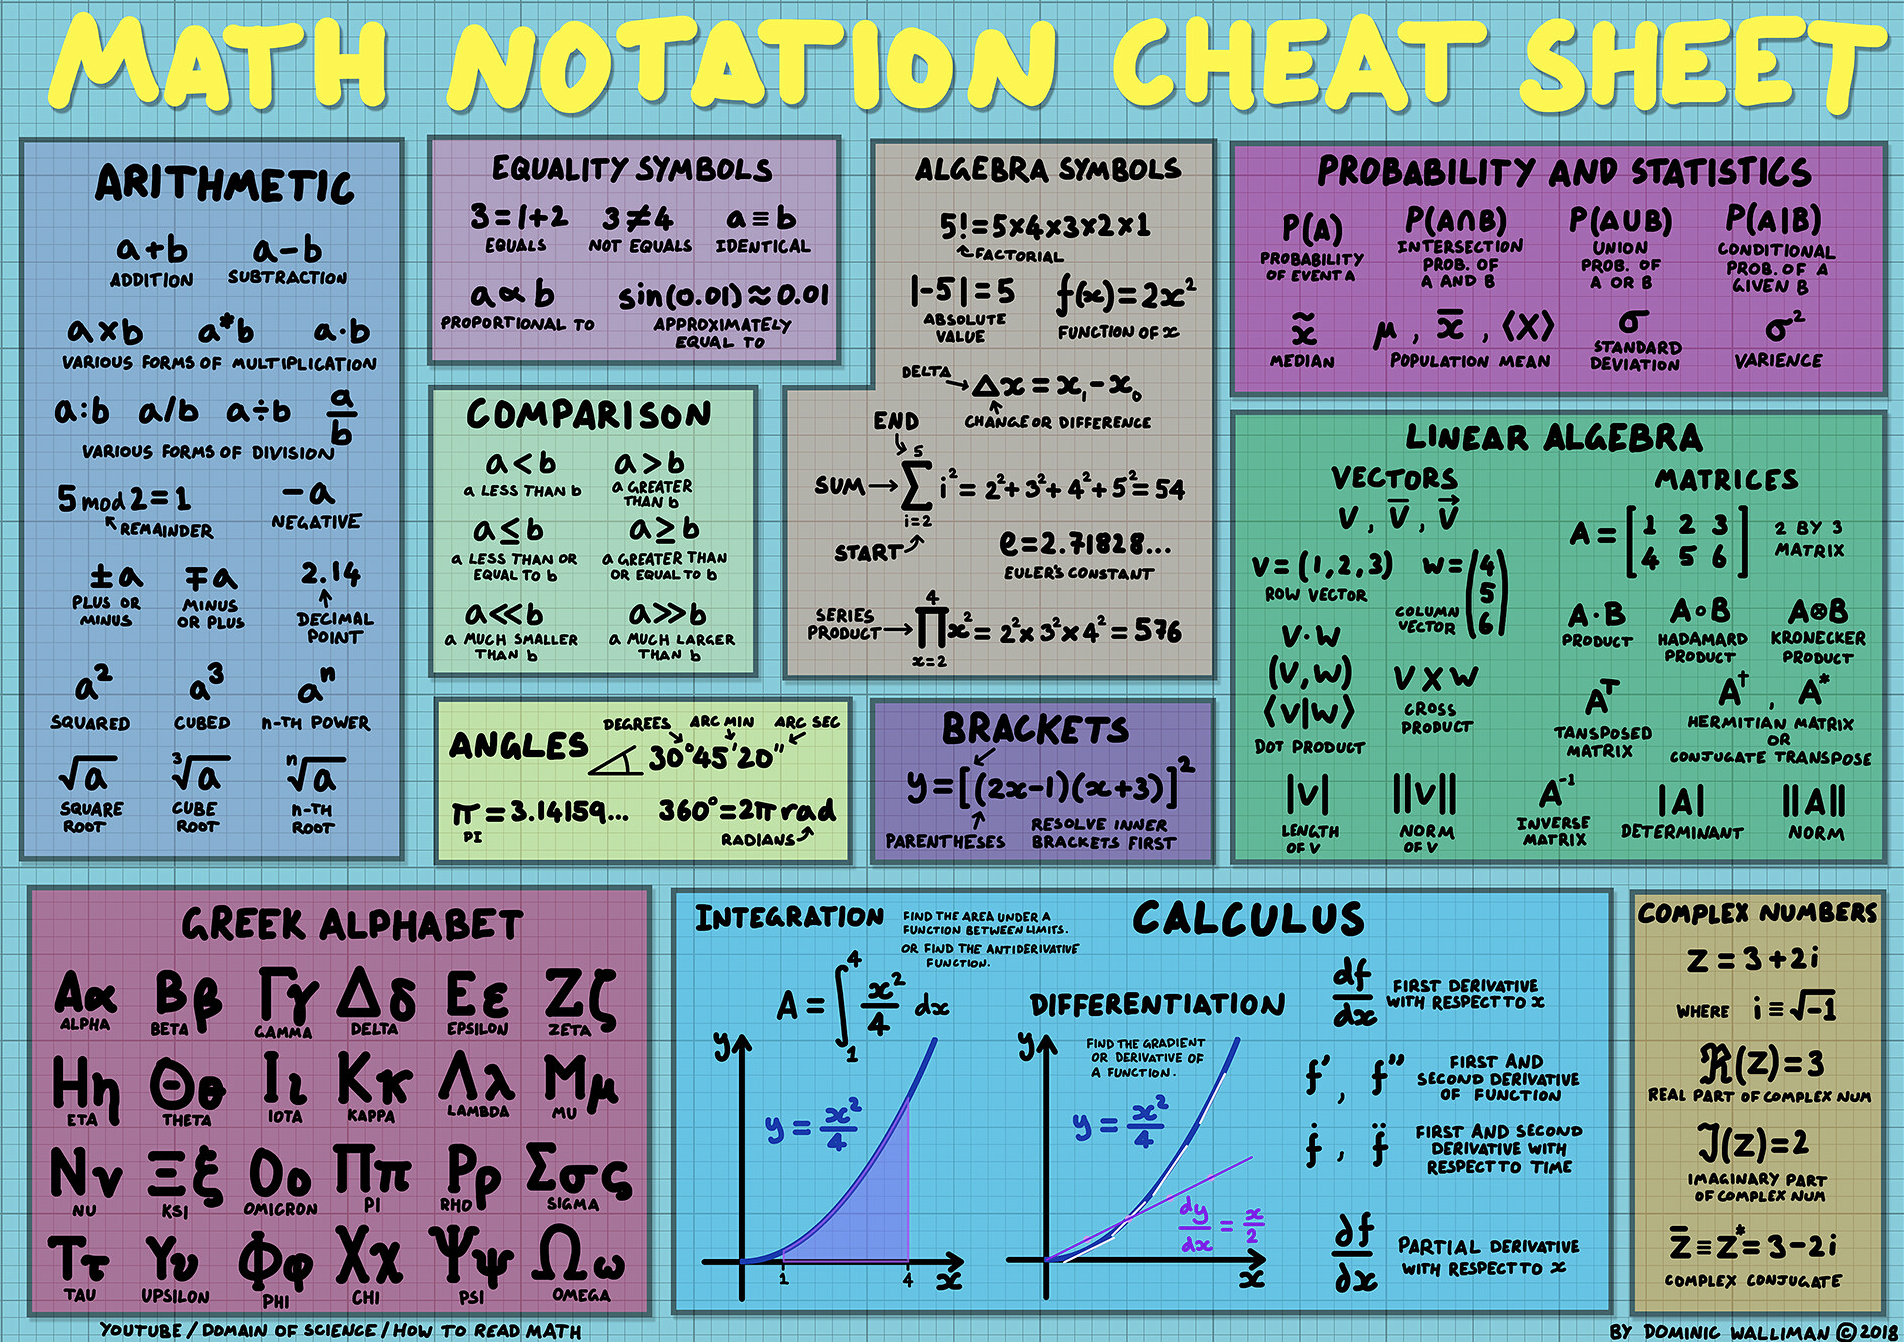 MATH NOTATION CHEAT SHEET
ARITHMETIC
a+b a-b
ADDITION SUBTRACTION
a×b a*b a·b
VARIOUS FORMS OF MULTIPLICATION
a:b a/b a÷b a/b
VARIOUS FORMS OF DIVISION
5 mod 2=1 -a
REMAINDER NEGATIVE
±a ∓a 2.14
PLUS OR MINUS
MINUS OR PLUS
DECIMAL POINT
a² a³ aⁿ
SQUARED CUBED n-TH POWER
√a ³√a ⁿ√a
SQUARE ROOT
CUBE ROOT
n-TH ROOT
EQUALITY SYMBOLS
3=1+2 3≠4 a≡b
EQUALS NOT EQUALS IDENTICAL
a∝b sin(0.01)≈0.01
PROPORTIONAL TO
APPROXIMATELY
EQUAL TO
COMPARISON
a<b a>b
a LESS THAN b
a GREATER
THAN b
a≤b a≥b
a LESS THAN OR
EQUAL TO b
a GREATER THAN
OR EQUAL TO b
a≪b a≫b
a MUCH SMALLER
THAN b
a MUCH LARGER
THAN b
ALGEBRA SYMBOLS
5!=5×4×3×2×1
FACTORIAL
|-5|=5 f(x)=2x²
ABSOLUTE
VALUE
FUNCTION OF x
DELTA Δx = x₁-x₀
CHANGE OR DIFFERENCE
END
5
SUM Σ i² = 2²+3²+4²+5²=54
i=2
START
e=2.71828...
EULER'S CONSTANT
4
SERIES
PRODUCT ∏ x² = 2²×3²×4² = 576
x=2
PROBABILITY AND STATISTICS
P(A) P(A∩B) P(A∪B) P(A|B)
PROBABILITY
OF EVENT A
INTERSECTION
PROB. OF
A AND B
UNION
PROB. OF
A OR B
CONDITIONAL
PROB. OF A
GIVEN B
x̃ μ, x̄, ⟨X⟩ σ σ²
MEDIAN POPULATION MEAN
STANDARD
DEVIATION
VARIENCE
LINEAR ALGEBRA
VECTORS
v, v̄, v⃗
v=(1,2,3)
ROW VECTOR
w=(4
5
6)
COLUMN
VECTOR
v·w
(v,w)
⟨v|w⟩
DOT PRODUCT
v×w
CROSS
PRODUCT
|v| ||v||
LENGTH
OF v
NORM
OF v
MATRICES
A = [1 2 3
4 5 6]
2 BY 3
MATRIX
A·B A∘B A⊗B
PRODUCT
HADAMARD
PRODUCT
KRONECKER
PRODUCT
Aᵀ A†, A*
TANSPOSED
MATRIX
HERMITIAN MATRIX
OR
CONJUGATE TRANSPOSE
A⁻¹ |A| ||A||
INVERSE
MATRIX
DETERMINANT NORM
ANGLES
DEGREES ARC MIN ARC SEC
30°45'20"
π=3.14159... 360°=2π rad
PI RADIANS
BRACKETS
y=[(2x-1)(x+3)]²
PARENTHESES
RESOLVE INNER
BRACKETS FIRST
GREEK ALPHABET
Αα Ββ Γγ Δδ Εε Ζζ
ALPHA BETA GAMMA DELTA EPSILON ZETA
Ηη Θθ Ιι Κκ Λλ Μμ
ETA THETA IOTA KAPPA LAMBDA MU
Νν Ξξ Οο Ππ Ρρ Σσς
NU KSI OMICRON PI RHO SIGMA
Ττ Υυ Φφ Χχ Ψψ Ωω
TAU UPSILON PHI CHI PSI OMEGA
CALCULUS
INTEGRATION
FIND THE AREA UNDER A
FUNCTION BETWEEN LIMITS.
OR FIND THE ANTIDERIVATIVE
FUNCTION.
A = ∫₁⁴ x²/4 dx
y
y = x²/4
1 4 x
DIFFERENTIATION
FIND THE GRADIENT
OR DERIVATIVE OF
A FUNCTION.
y
y = x²/4
dy/dx = x/2
x
df/dx
FIRST DERIVATIVE
WITH RESPECT TO x
f', f''
FIRST AND
SECOND DERIVATIVE
OF FUNCTION
ḟ, f̈
FIRST AND SECOND
DERIVATIVE WITH
RESPECT TO TIME
∂f/∂x
PARTIAL DERIVATIVE
WITH RESPECT TO x
COMPLEX NUMBERS
z = 3+2i
WHERE i≡√-1
ℜ(z)=3
REAL PART OF COMPLEX NUM
ℑ(z)=2
IMAGINARY PART
OF COMPLEX NUM
z̄≡z*=3-2i
COMPLEX CONJUGATE
YOUTUBE / DOMAIN OF SCIENCE / HOW TO READ MATH
BY DOMINIC WALLIMAN © 2018